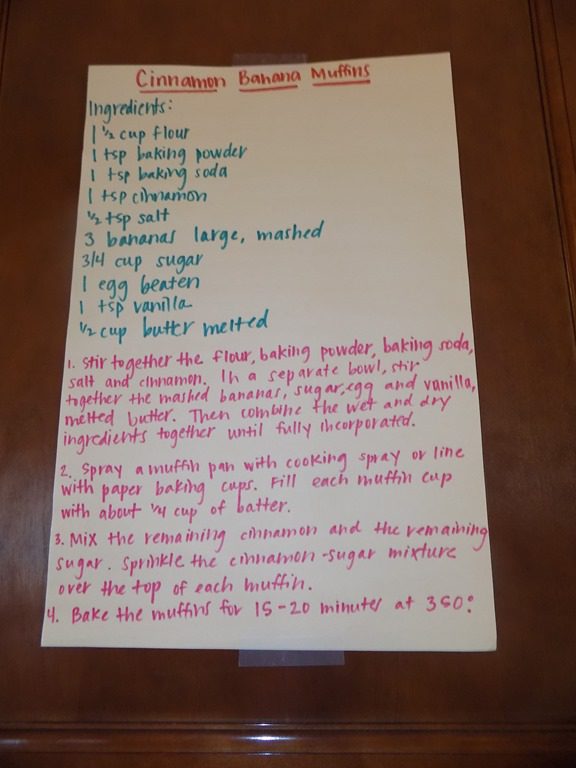 Cinnamon Banana Muffins
Ingredients:
1 ½ cup flour
1 tsp baking powder
1 tsp baking soda
1 tsp cinnamon
½ tsp salt
3 bananas large, mashed
3/4 cup sugar
1 egg beaten
1 tsp vanilla
½ cup butter melted
1. Stir together the flour, baking powder, baking soda,
salt and cinnamon. In a separate bowl, stir
together the mashed bananas, sugar, egg and vanilla,
melted butter. Then combine the wet and dry
ingredients together until fully incorporated.
2. Spray a muffin pan with cooking spray or line
with paper baking cups. Fill each muffin cup
with about ¼ cup of batter.
3. Mix the remaining cinnamon and the remaining
sugar. Sprinkle the cinnamon-sugar mixture
over the top of each muffin.
4. Bake the muffins for 15-20 minutes at 350°.